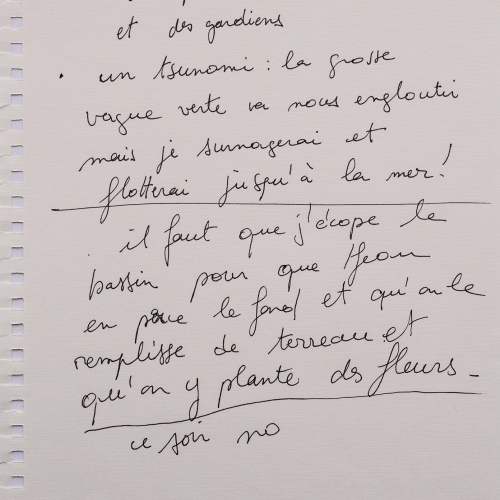 et des gardiens
. un tsunami : la grosse
vague verte va nous engloutir
mais je surnagerai et
flotterai jusqu'à la mer !
il faut que j'écope le
bassin pour que
en le fond et qu'on le
remplisse de terreau et
qu'on y plante des fleurs -
ce soir no